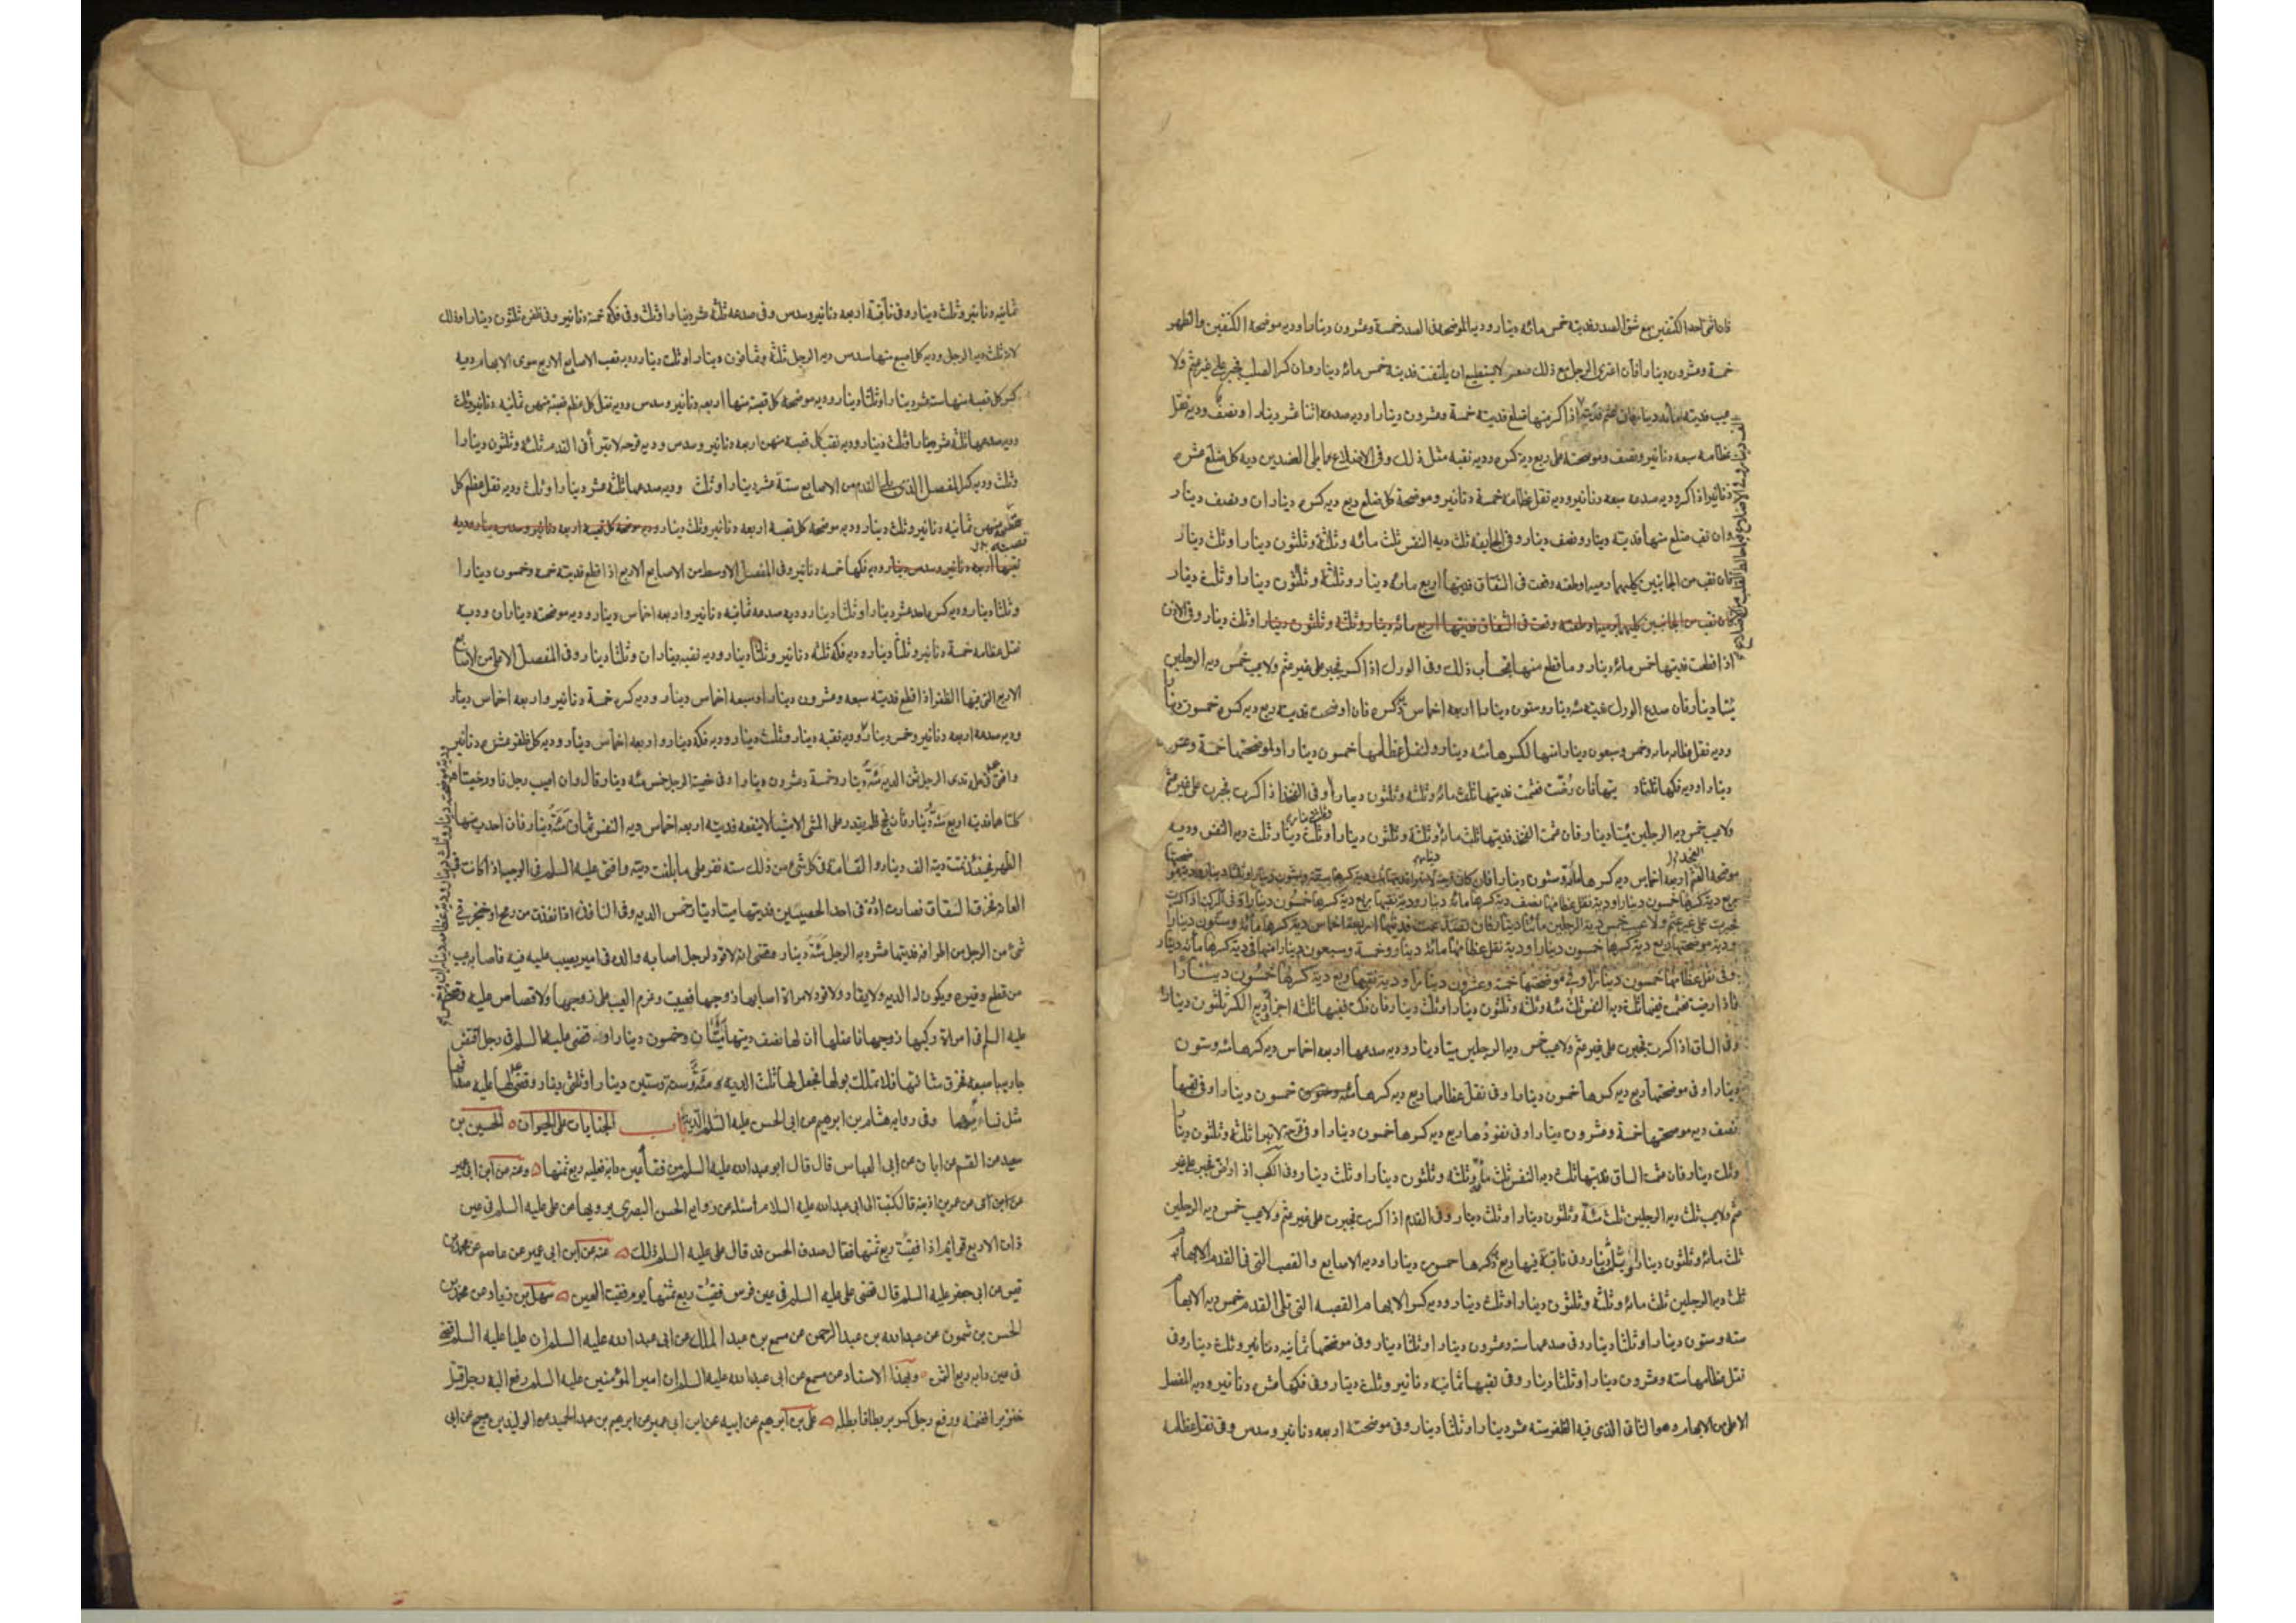 فان انثنى احد الكتفين مع شق الصدر فديته خمس مائه دينار وديه الموضحه فى الصدر خمسة وعشرون دينارا وديه موضحه الكتفين والظهر
خمسة وعشرون دينارا فان اعترى الرجل مع ذلك صعر لا يستطيع ان يلتفت فديته خمس مائه دينار وان كسر الصلب فجبر على غير عثم ولا
عيب فديته مائه دينار فان عثم اذا كسر منها ضلع فديته خمسة وعشرون دينارا وديه صدعه اثنا عشر دينارا ونصف وديه نقل
عظامه سبعه دنانير ونصف وموضحته على ربع ديه كسره وديه نقبه مثل ذلك وفى الاضلاع مما يلى العضدين ديه كل ضلع عشره
دنانير اذا كسر وديه صدعه سبعه دنانير وديه نقل عظامه خمسة دنانير وموضحة كل ضلع ربع ديه كسره ديناران ونصف دينار
وان نقب ضلع منها فديته دينار ونصف دينار وفى الجايفه ثلث ديه النفس ثلث مائه وثلثة وثلثون دينارا وثلث دينار
فان نقب من الجانبين كليهما رميه او طعنه وقعت فى الشقاق فديتها اربع مائه دينار وثلثة وثلثون دينارا وثلث دينار
فان نقب من الجانبين كليهما رميه او طعنه وقعت فى الشقاق فديتها اربع مائه دينار وثلثة وثلثون دينارا وثلث دينار وفى الاذن
اذا قطعت فديتها خمس مائه دينار وما قطع منها فبحساب ذلك وفى الورك اذا كسر فجبر على غير عثم ولا عيب خمس ديه الرجلين
مئتا دينار فان صدع الورك فديته مئه دينار وستون دينارا اربعه اخماس ديه كسره فان اوضحت فديته ربع ديه كسره خمسون دينارا
وديه نقل عظامه مائه وخمس وسبعون دينارا منها لكسرها مئه دينار ولنقل عظامها خمسون دينارا ولموضحتها خمسة وعشرون
دينارا وديه فكها ثلثا ديتها فان رضت فعثمت فديتها ثلث مائه وثلثه وثلثون دينارا وفى الفخذ اذا كسرت فجبرت على غير عثم
ولا عيب خمس ديه الرجلين مئتا دينار فان عثمت الفخذ فديتها ثلث مائه وثلثة وثلثون دينارا وثلث دينار ثلث ديه النفس وديه
ربع دية كسرها خمسون دينارا ودية نقل عظامها نصف دية كسرها مائة دينار ودية نقبها ربع دية كسرها خمسون دينارا وفى الركبة اذا كسرت
فجبرت على غير عثم ولا عيب خمس دية الرجلين مائتا دينار فان انصدعت فديتها اربعة اخماس دية كسرها مائة وستون دينارا
ودية موضحتها ربع دية كسرها خمسون دينارا ودية نقل عظامها مائة دينار وخمسة وسبعون دينارا منها فى دية كسرها مائة دينار
وفى نقل عظامها خمسون دينارا وفى موضحتها خمسة وعشرون دينارا ودية نقبها ربع دية كسرها خمسون دينارا
فاذا رضت فعثمت ففيها ثلث ديه النفس ثلث مئه وثلثه وثلثون دينارا وثلث دينار فان فكت ففيها ثلثه اجزاء ديه الكسر ثلثون دينارا
وفى الساق اذا كسرت فجبرت على غير عثم ولا عيب خمس ديه الرجلين مئتا دينار وديه صدعها اربعه اخماس ديه كسرها مئه وستون
دينارا وفى موضحتها ربع ديه كسرها خمسون دينارا وفى نقل عظامها ربع ديه كسرها خمسون دينارا وفى نقبها
نصف ديه موضحتها خمسة وعشرون دينارا وفى نفوذها ربع ديه كسرها خمسون دينارا وفى قرحة لا تبرا ثلثة وثلثون دينارا
وثلث دينار فان عثمت الساق فديتها ثلث ديه النفس ثلث مائه وثلثه وثلثون دينارا وثلث دينار وفى الكعب اذا رض فجبر على غير
عثم ولا عيب ثلث ديه الرجلين ثلث مئة وثلثون دينارا وثلث دينار وفى القدم اذا كسرت فجبرت على غير عثم ولا عيب خمس ديه الرجلين
ثلث مائه وثلثون دينارا وثلث دينار وفى ناقبة فيها ربع كسرها خمسون دينارا وديه الاصابع والقصب التى فى القدم الابهام
ثلث ديه الرجلين ثلث مائه وثلثه وثلثون دينارا وثلث دينار وديه كسر الابهام القصبه التى تلى القدم خمس ديه الابهام
سته وستون دينارا وثلثا دينار وفى صدعها سته وعشرون دينارا وثلثا دينار وفى موضحتها ثمانيه دنانير وثلث دينار وفى
نقل عظامها سته وعشرون دينارا وثلثا دينار وفى نقبها ثمانيه دنانير وثلث دينار وفى فكها عشره دنانير وديه المفصل
الاعلى من الابهام وهو الثانى الذى فيه الظفر سته عشر دينارا وثلثا دينار وفى موضحته اربعه دنانير وسدس وفى نقل عظامه
ثمانيه دنانير وثلث دينار وفى ناقبة اربعه دنانير وسدس وفى صدعه ثلثه عشر دينارا وثلث وفى فكه خمسة دنانير وفى ظفره ثلثون دينارا وذلك
لانه ثلث ديه الرجل وديه كل اصبع منها سدس ديه الرجل ثلثة وثمانون دينارا وثلث دينار وديه قصب الاصابع الاربع سوى الابهام ديه
كسر كل قصبه منها سته عشر دينارا وثلثا دينار وديه موضحه كل قصبة منها اربعه دنانير وسدس وديه نقل كل عظم قصبة منهن ثمانيه دنانير وثلث
وديه صدعها ثلثه عشر دينارا وثلث دينار وديه نقب كل قصبه منهن اربعه دنانير وسدس وديه قرحه لا تبرا فى القدم ثلثه وثلثون دينارا
وثلث وديه كسر المفصل الذى يلى القدم من الاصابع ستة عشر دينارا وثلث وديه صدعها ثلثة عشر دينارا وثلث وديه نقل عظم كل
قصبة منهن ثمانيه دنانير وثلث دينار وديه موضحه كل قصبه اربعه دنانير وثلث دينار وديه موضحه كل قصبه اربعه دنانير وسدس دينار وديه
نقبها اربعه دنانير وسدس دينار وديه فكها خمسه دنانير وفى المفصل الاوسط من الاصابع الاربع اذا قطع فديته خمسه وخمسون دينارا
وثلثا دينار وديه كسره احد عشر دينارا وثلثا دينار وديه صدعه ثمانيه دنانير واربعه اخماس دينار وديه موضحته ديناران وديه
نقل عظامه خمسة دنانير وثلثا دينار وديه فكه ثلثه دنانير وثلثا دينار وديه نقبه ديناران وثلثا دينار وفى المفصل الاعلى من الاصابع
الاربع التى فيها الظفر اذا قطع فديته سبعه وعشرون دينارا واربعه اخماس دينار وديه كسره خمسة دنانير واربعه اخماس دينار
وديه صدعه اربعه دنانير وخمس دينار وديه نقبه دينار وثلث دينار وديه فكه دينار واربعه اخماس دينار وديه كل ظفر عشره دنانير
وافتى فى حلمه ثدى الرجل ثمن الديه مئة دينار وخمسة وعشرون دينارا وفى خصية الرجل خمس مئه دينار قال وان اصيب رجل فادر خصيتاه
كلتاهما فديته اربع مئة دينار فان فحج فلم يقدر على المشى الا مشيا لا ينفعه فديته اربعه اخماس ديه النفس ثمان مئة دينار فان احدب منها
الظهر فحينئذ تمت ديته الف دينار والقسامة فى كل شىء من ذلك سته نفر على ما بلغت ديته وافتى عليه السلم فى الوجيه اذا كانت فى
العانه فخرق السفاق فصارت ادرة فى احدى الخصيتين فديتها مئتا دينار خمس الديه وفى النافذة اذا نفذت من رمح او خنجر فى
شىء من الرجل من اطرافه فديتها عشر ديه الرجل مئة دينار وقضى انه لا قود لرجل اصابه والده فى امر يعيب عليه فيه فاصابه عيب
من قطع وغيره ويكون له الديه ولا يقاد ولا قود لامراة اصابها زوجها فعيبت وغرم العيب على زوجها ولا قصاص عليه وقضى
عليه السلم فى امراة ركبها زوجها فاعفلها ان لها نصف ديتها مئتان وخمسون دينارا وقضى عليه السلم فى رجل افتض
جاريه باصبعه فخرق مثانتها فلا تملك بولها فجعل لها ثلث الديه مئة وستة وستين دينارا وثلثى دينار وقضى لها عليه صداقها
مثل نساء قومها وفى روايه هشام بن ابرهيم عن ابى الحسن عليه السلم الدية باب الجنايات على الحيوان الحسين بن
سعيد عن القسم عن ابان عن ابى العباس قال قال ابو عبدالله عليه السلم من فقأ عين دابة فعليه ربع ثمنها وعنه عن ابن ابى عمير
عن ابن اذينه قال كتبت الى ابى عبدالله عليه السلام اسئله عن روايه الحسن البصرى يرويها عن على عليه السلم فى عين
ذات الاربع قوائم اذا فقئت ربع ثمنها فقال صدق الحسن قد قال على عليه السلم ذلك عنه عن ابن ابى عمير عن عاصم عن محمد بن
قيس عن ابى جعفر عليه السلم قال قضى على عليه السلم فى عين فرس فقئت ربع ثمنها يوم فقئت العين سهل بن زياد عن محمد بن
الحسن بن شمون عن عبدالله بن عبد الرحمن عن مسمع بن عبد الملك عن ابى عبدالله عليه السلم ان عليا عليه السلم قضى
فى عين دابه ربع الثمن وبهذا الاسناد عن مسمع عن ابى عبدالله عليه السلم ان امير المؤمنين عليه السلم رفع اليه رجل قتل
خنزيرا فضمنه ورفع رجل كسر بربطا فابطله على بن ابرهيم عن ابيه عن ابن ابى عمير عن ابرهيم بن عبد الحميد عن الوليد بن صبيح عن ابى